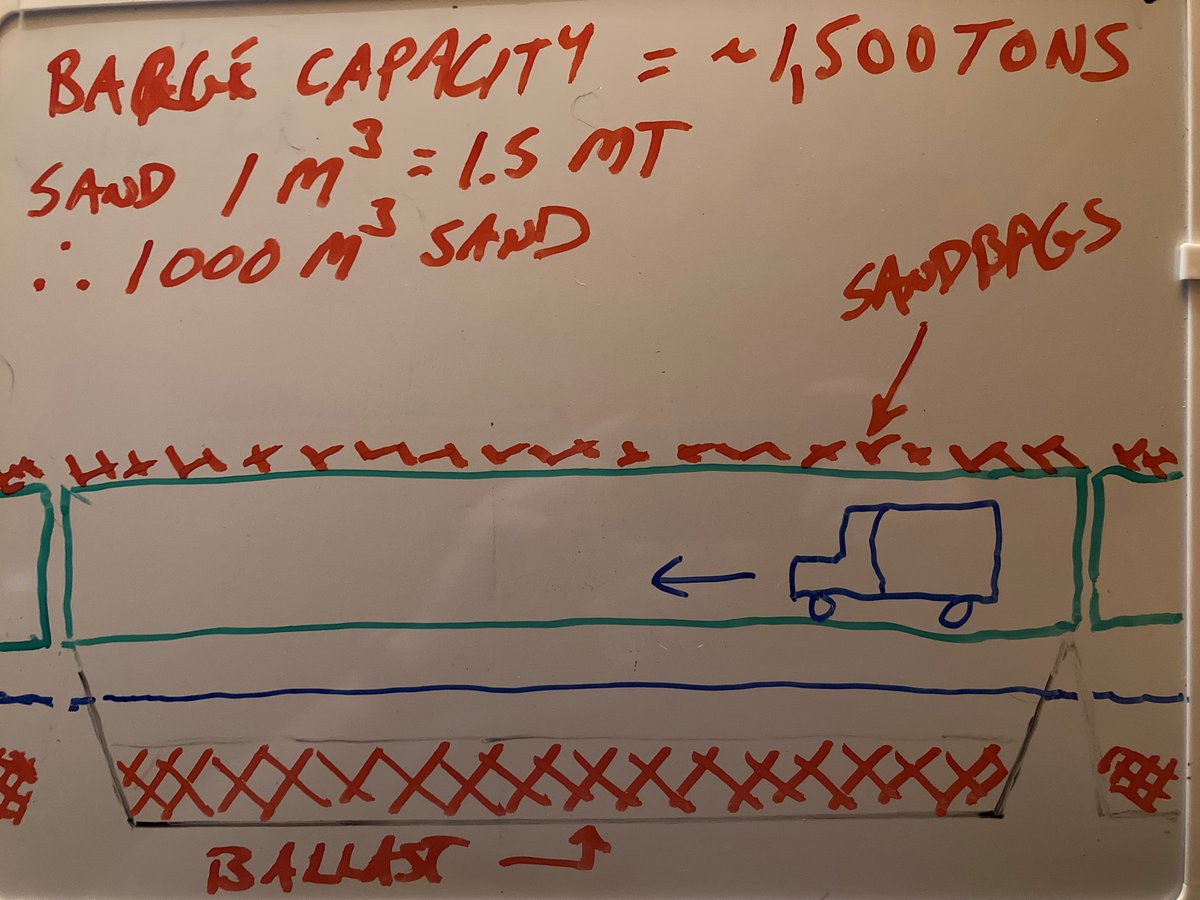 BARGE CAPACITY = ~1,500 TONS
SAND 1 M³ = 1.5 MT
∴ 1000 M³ SAND
SANDBAGS
BALLAST